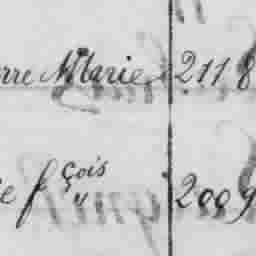 rre Marie 2118
ie fçois " 2009